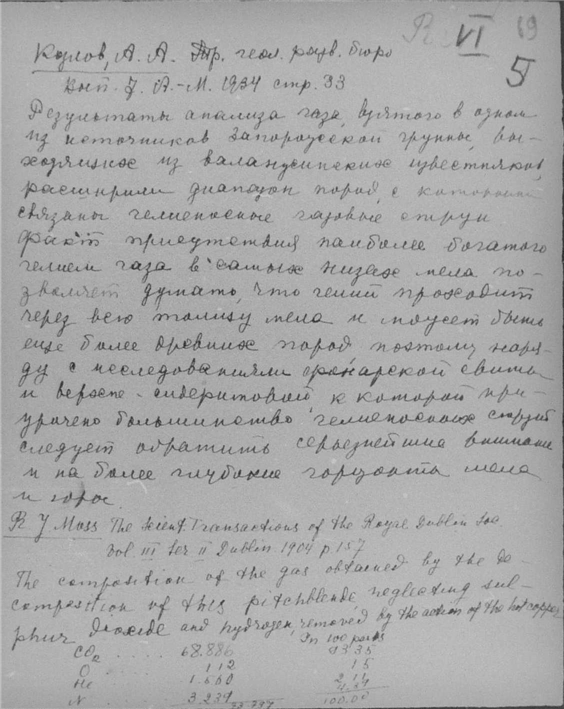 VI 69
5
Козлов, А. А. Тр. геол. разв. бюро
вып. 7. Л.-М. 1934 стр. 33
Результаты анализа газа, взятого в одном
из источников Запорожской группы, вы-
ходящих из валанжинских известняков,
расширили диапазон пород, с которыми
связаны гелиеносные газовые струи
Факт присутствия наиболее богатого
гелием газа в самых низах мела по-
зволяет думать, что гелий проходит
через всю толщу мела и может быть
еще более древних пород поэтому наря-
ду с исследованиями свиты
и верхне-сидеритовой к которой при-
урочено большинство гелиеносных струй
следует обратить серьезнейшие внимание
и на более глубокие горизонты мела
и юры.
R J Moss The Scient. Transactions of the Royal Dublin Soc
Vol III Ser II Dublin 1904 p. 157
The composition of the gas obtained by the de-
composition of this pitchblende, neglecting sul-
phur dioxide and hydrogen, removed by the action of the hot copper
In 100 parts
CO2 ..... 68.886 93.35
O ..... 112 15
He ..... 1.560 2.11
N ..... 3.239 4.39
100.00